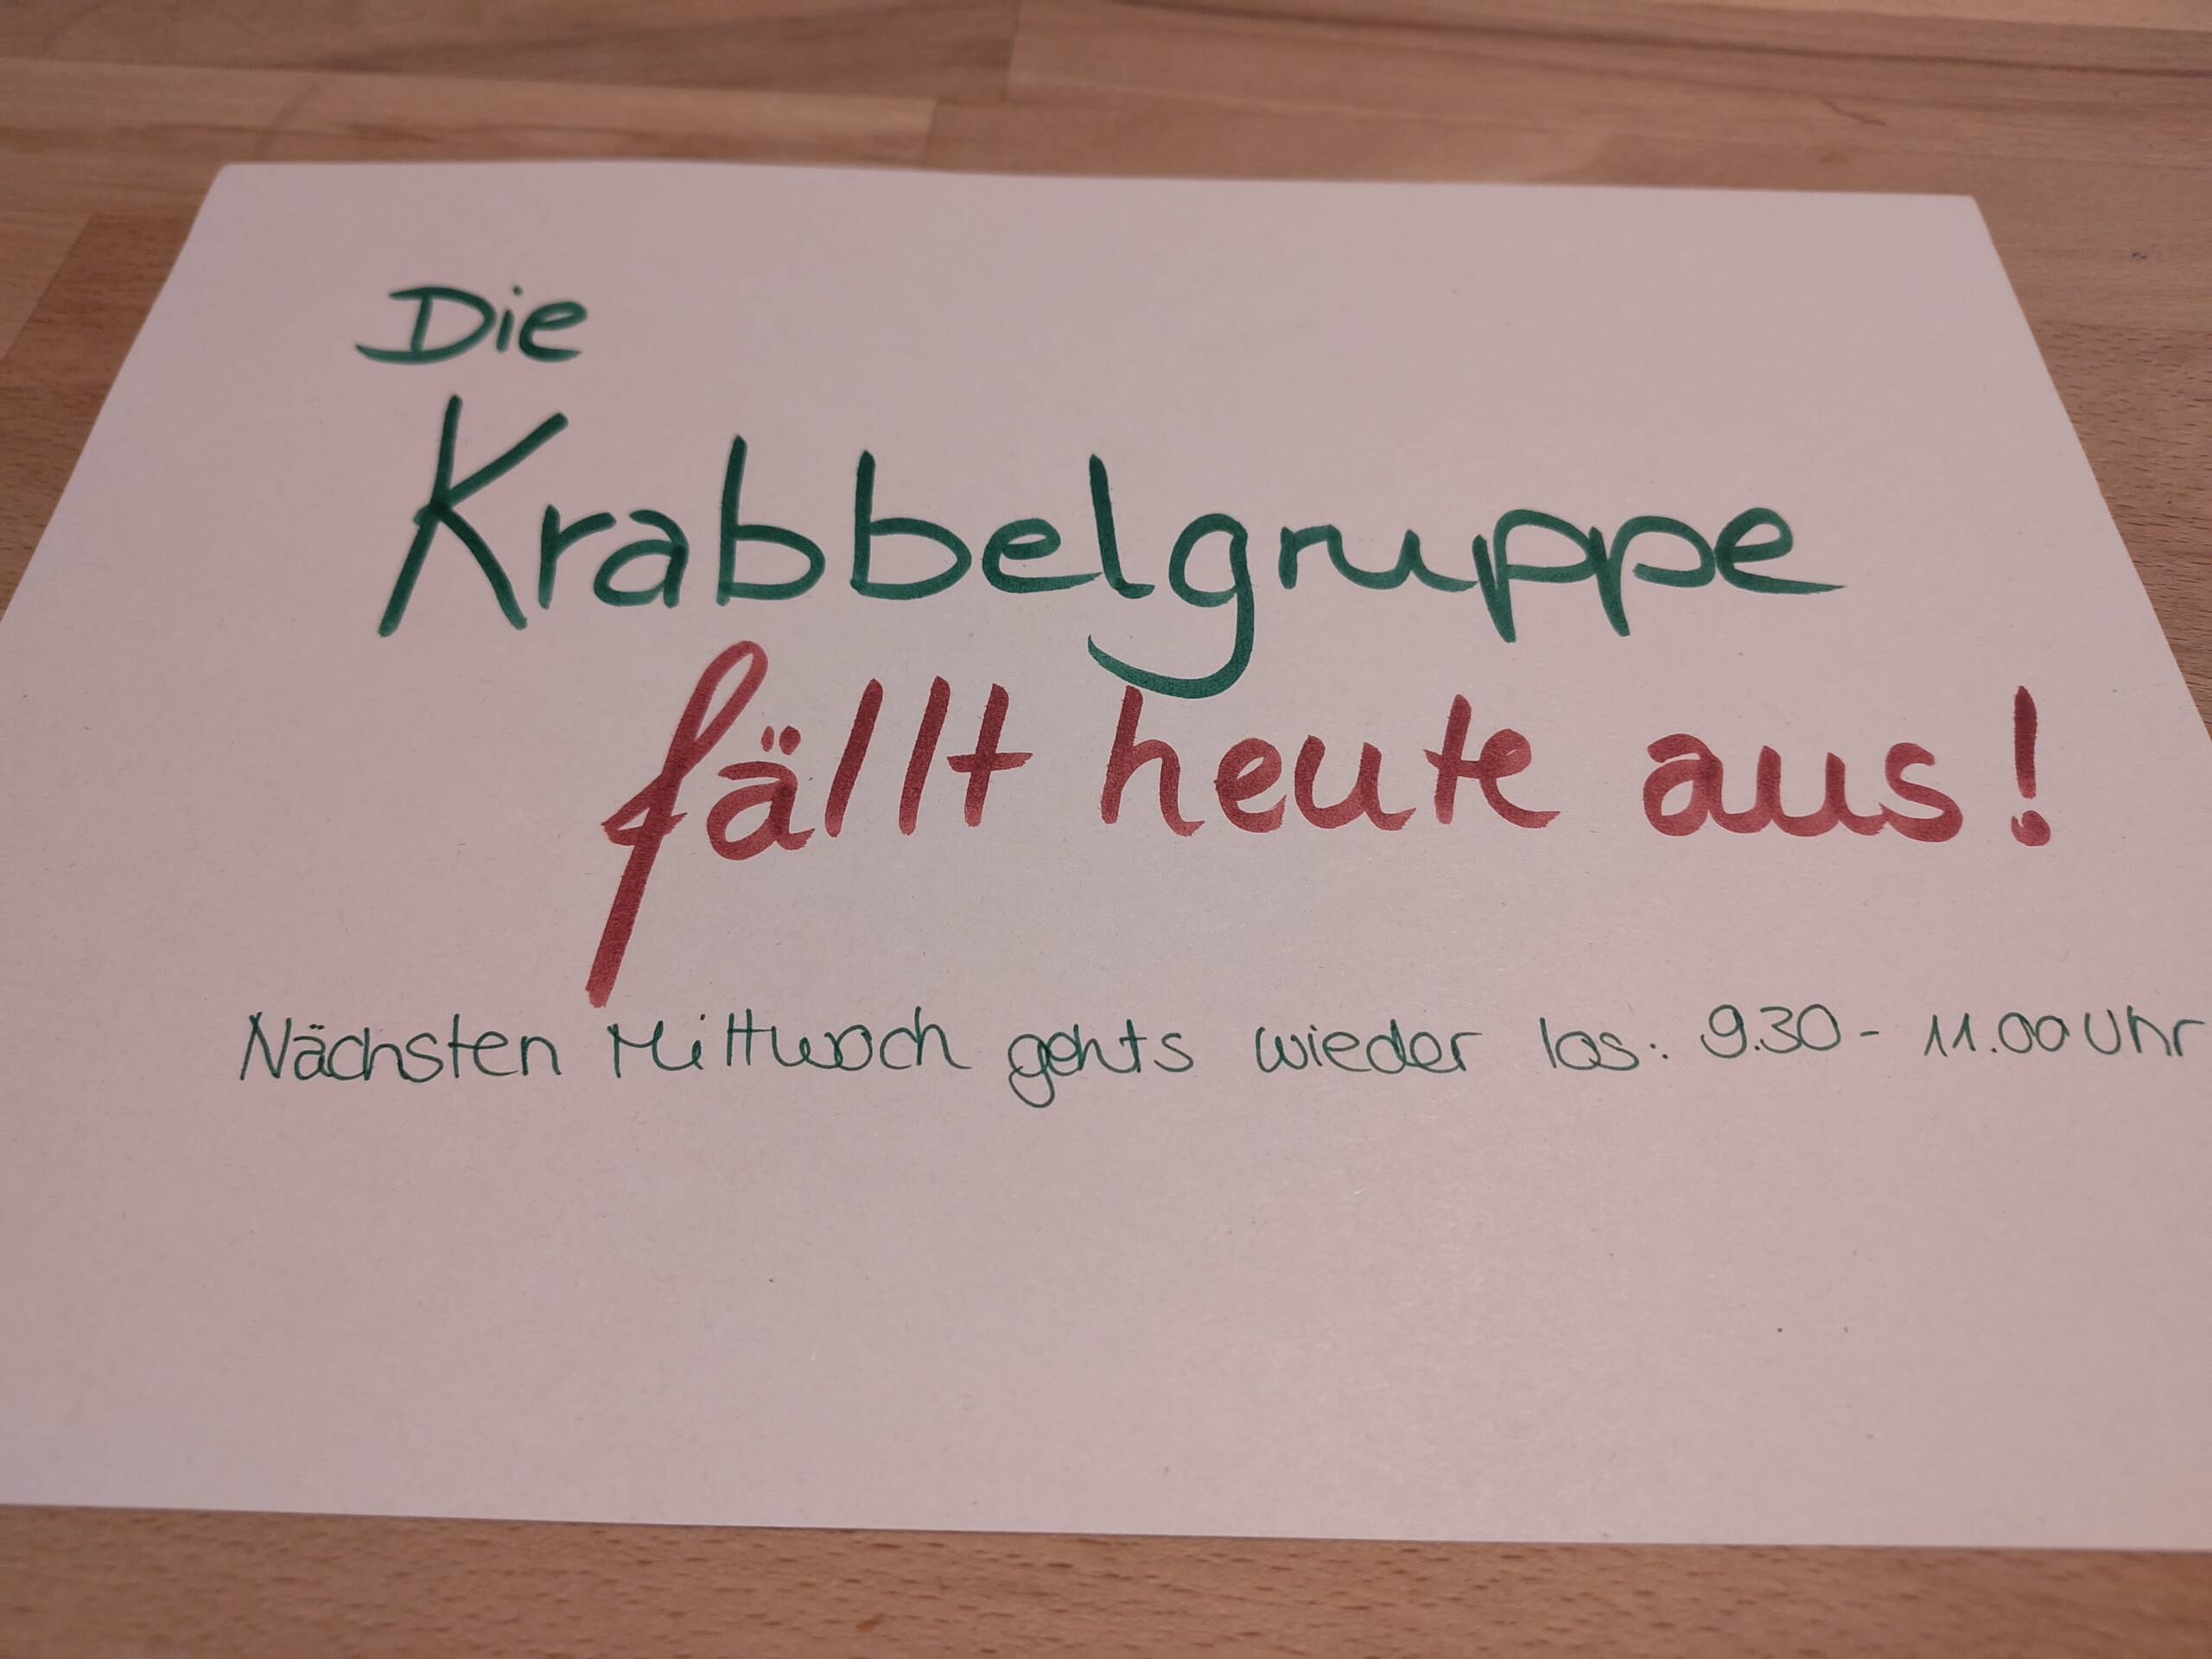 Die
Krabbelgruppe
fällt heute aus!
Nächsten Mittwoch gehts wieder los: 9.30 - 11.00 Uhr